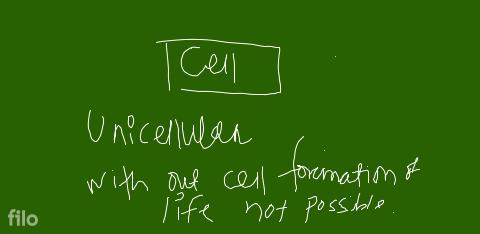 Cell
Unicellular
with out cell formation of
life not possible.
filo